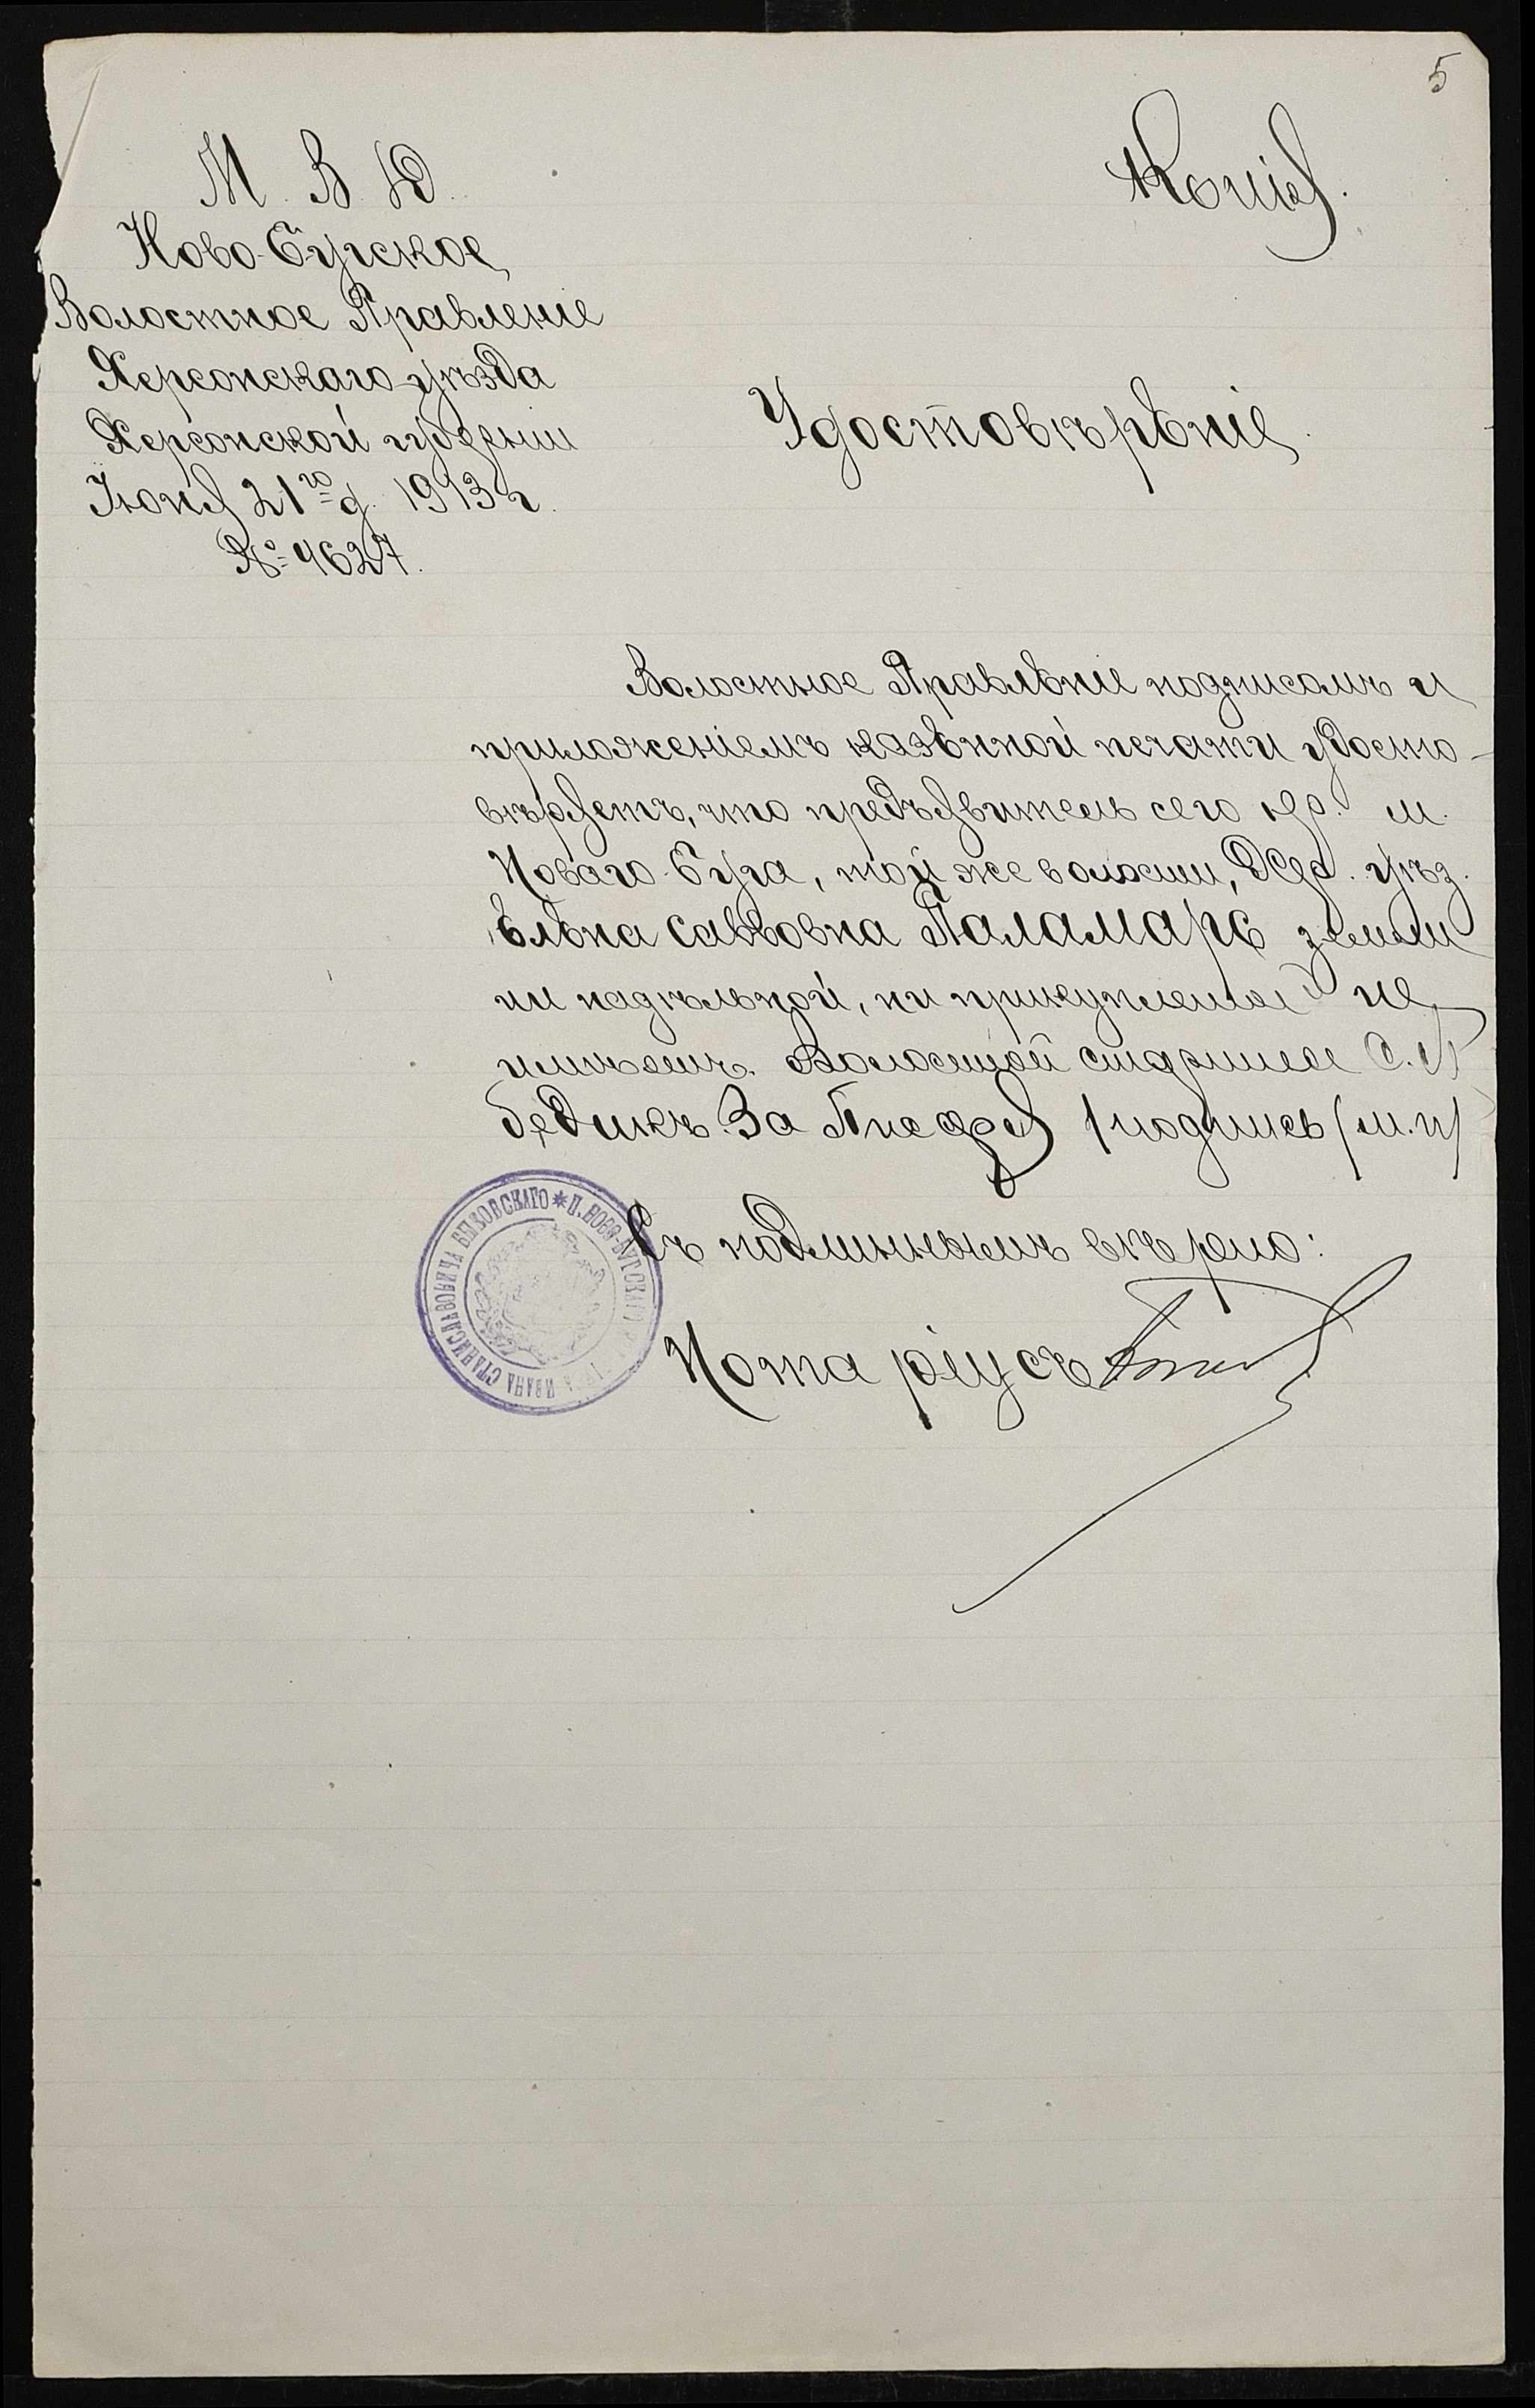 5
М. В. Д.
Копія.
Ново-Бугское
Волостное Правленіе
Херсонскаго уѣзда
Херсонской губерніи
Іюня 21го д. 1913 г.
№ 4627.
Удостовѣреніе.
Волостное Правленіе подписомъ и
приложеніемъ казенной печати удосто-
вѣряетъ, что предъявитель сего кр. м.
Новаго-Буга, той же волости, Хер. уѣз.
Елена Саввовна Паламарь земли
ни надѣльной, ни прикупленной не
имѣетъ. Волостной старшина С.
За Писаря /подпись/ м.п/
Съ подлиннымъ вѣрно:
Нотаріусъ
ИВАНА СТАНИСЛАВОВИЧА ВЫКОВСКАГО * П. НОВО-БУГСКАГО